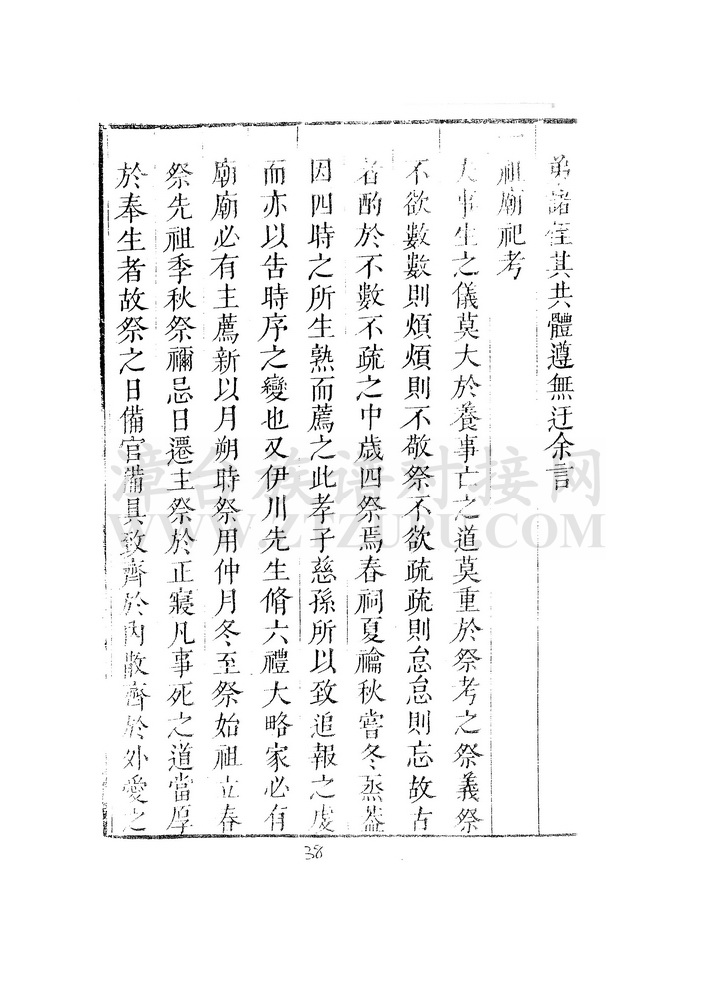 弟諸侄其共體遵無迂余言
一祖廟祀考
夫事生之儀莫大於養事亡之道莫重於祭考之祭義祭
不欲數數則煩煩則不敬祭不欲疏疏則怠怠則忘故古
者酌於不數不疏之中歲四祭焉春祠夏禴秋嘗冬烝蓋
因四時之所生熟而薦之此孝子慈孫所以致追報之虔
而亦以告時序之變也又伊川先生脩六禮大略家必有
廟廟必有主薦新以月朔時祭用仲月冬至祭始祖立春
祭先祖季秋祭禰忌日遷主祭於正寢凡事死之道當厚
於奉生者故祭之日備官備具致齊於內散齊於外愛之
38
漳台族谱对接网
WWW.ZTZUPU.COM